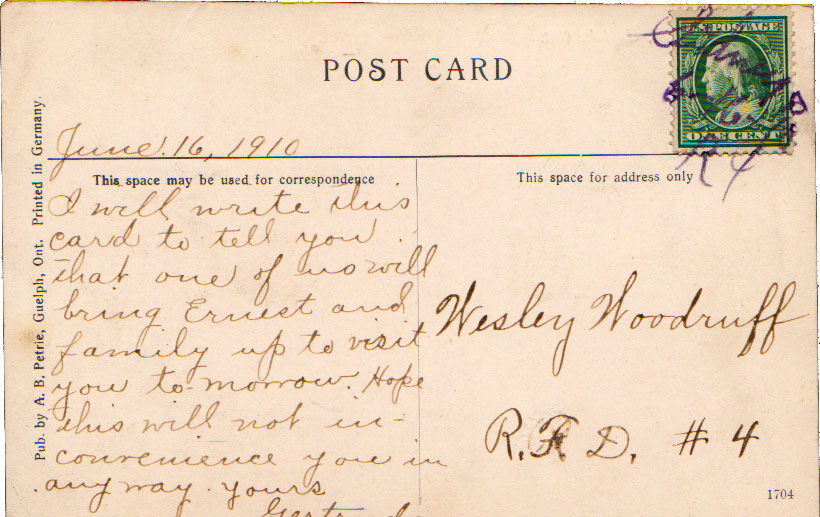 POST CARD
U.S. POSTAGE
ONE CENT
R 4
June. 16, 1910
This space may be used for correspondence
This space for address only
I will write this
card to tell you
that one of us will
bring Ernest and
family up to visit
you to-morrow. Hope
this will not in-
convenience you in
any way. yours
Wesley Woodruff
R.F.D. # 4
Pub. by A. B. Petrie, Guelph, Ont. Printed in Germany.
1704